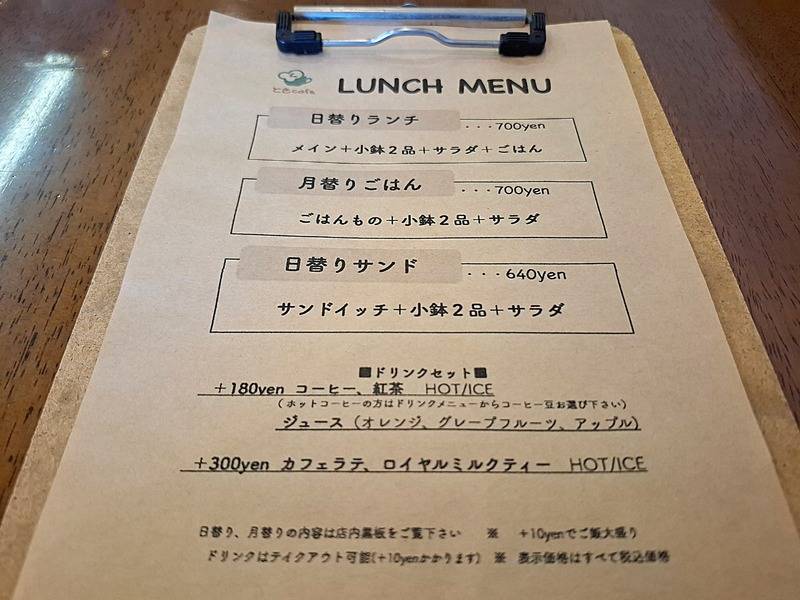 と色cafe
LUNCH MENU
日替りランチ ...700yen
メイン＋小鉢２品＋サラダ＋ごはん
月替りごはん ...700yen
ごはんもの＋小鉢２品＋サラダ
日替りサンド ...640yen
サンドイッチ＋小鉢２品＋サラダ
■ドリンクセット■
＋180yen コーヒー、紅茶 HOT/ICE
（ホットコーヒーの方はドリンクメニューからコーヒー豆お選び下さい）
ジュース（オレンジ、グレープフルーツ、アップル）
＋300yen カフェラテ、ロイヤルミルクティー HOT/ICE
日替り、月替りの内容は店内黒板をご覧下さい ※ +10yenでご飯大盛り
ドリンクはテイクアウト可能(+10yenかかります) ※ 表示価格はすべて税込価格